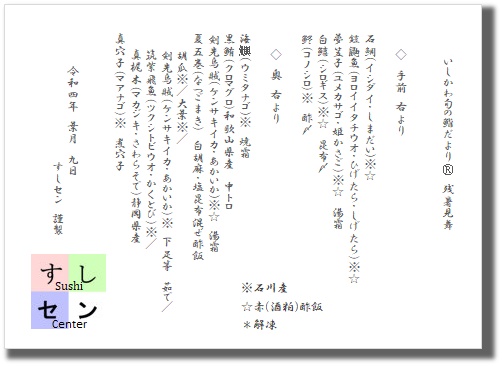 いしかわ旬の鮨だより® 残暑見舞
◇ 手前 右より
石鯛(イシダイ・しまだい)※☆
鎧鼬魚(ヨロイイタチウオ・ひげたら・しげたら)※☆
夢笠子(ユメカサゴ・姫かさご)※☆ 湯霜
白鱚(シロギス)※☆ 昆布〆
鮗(コノシロ)※ 酢〆
◇ 奥 右より
海鱮(ウミタナゴ)※ 焼霜
黒鮪(クロマグロ)和歌山県産 中トロ
剣先烏賊(ケンサキイカ・あかいか)※☆ 湯霜
夏五巻(なつごまき) 白胡麻・塩昆布混ぜ酢飯
胡瓜※/大葉※/
剣先烏賊(ケンサキイカ・あかいか)※ 下足等 茹で/
筑紫飛魚(ツクシトビウオ・かくとび)※/
真梶木(マカジキ・さわらそて)静岡県産
真穴子(マアナゴ)※ 煮穴子
令和四年 葉月 九日
すしセン 謹製
※石川産
☆赤(酒粕)酢飯
＊解凍
すし
Sushi
セン
Center